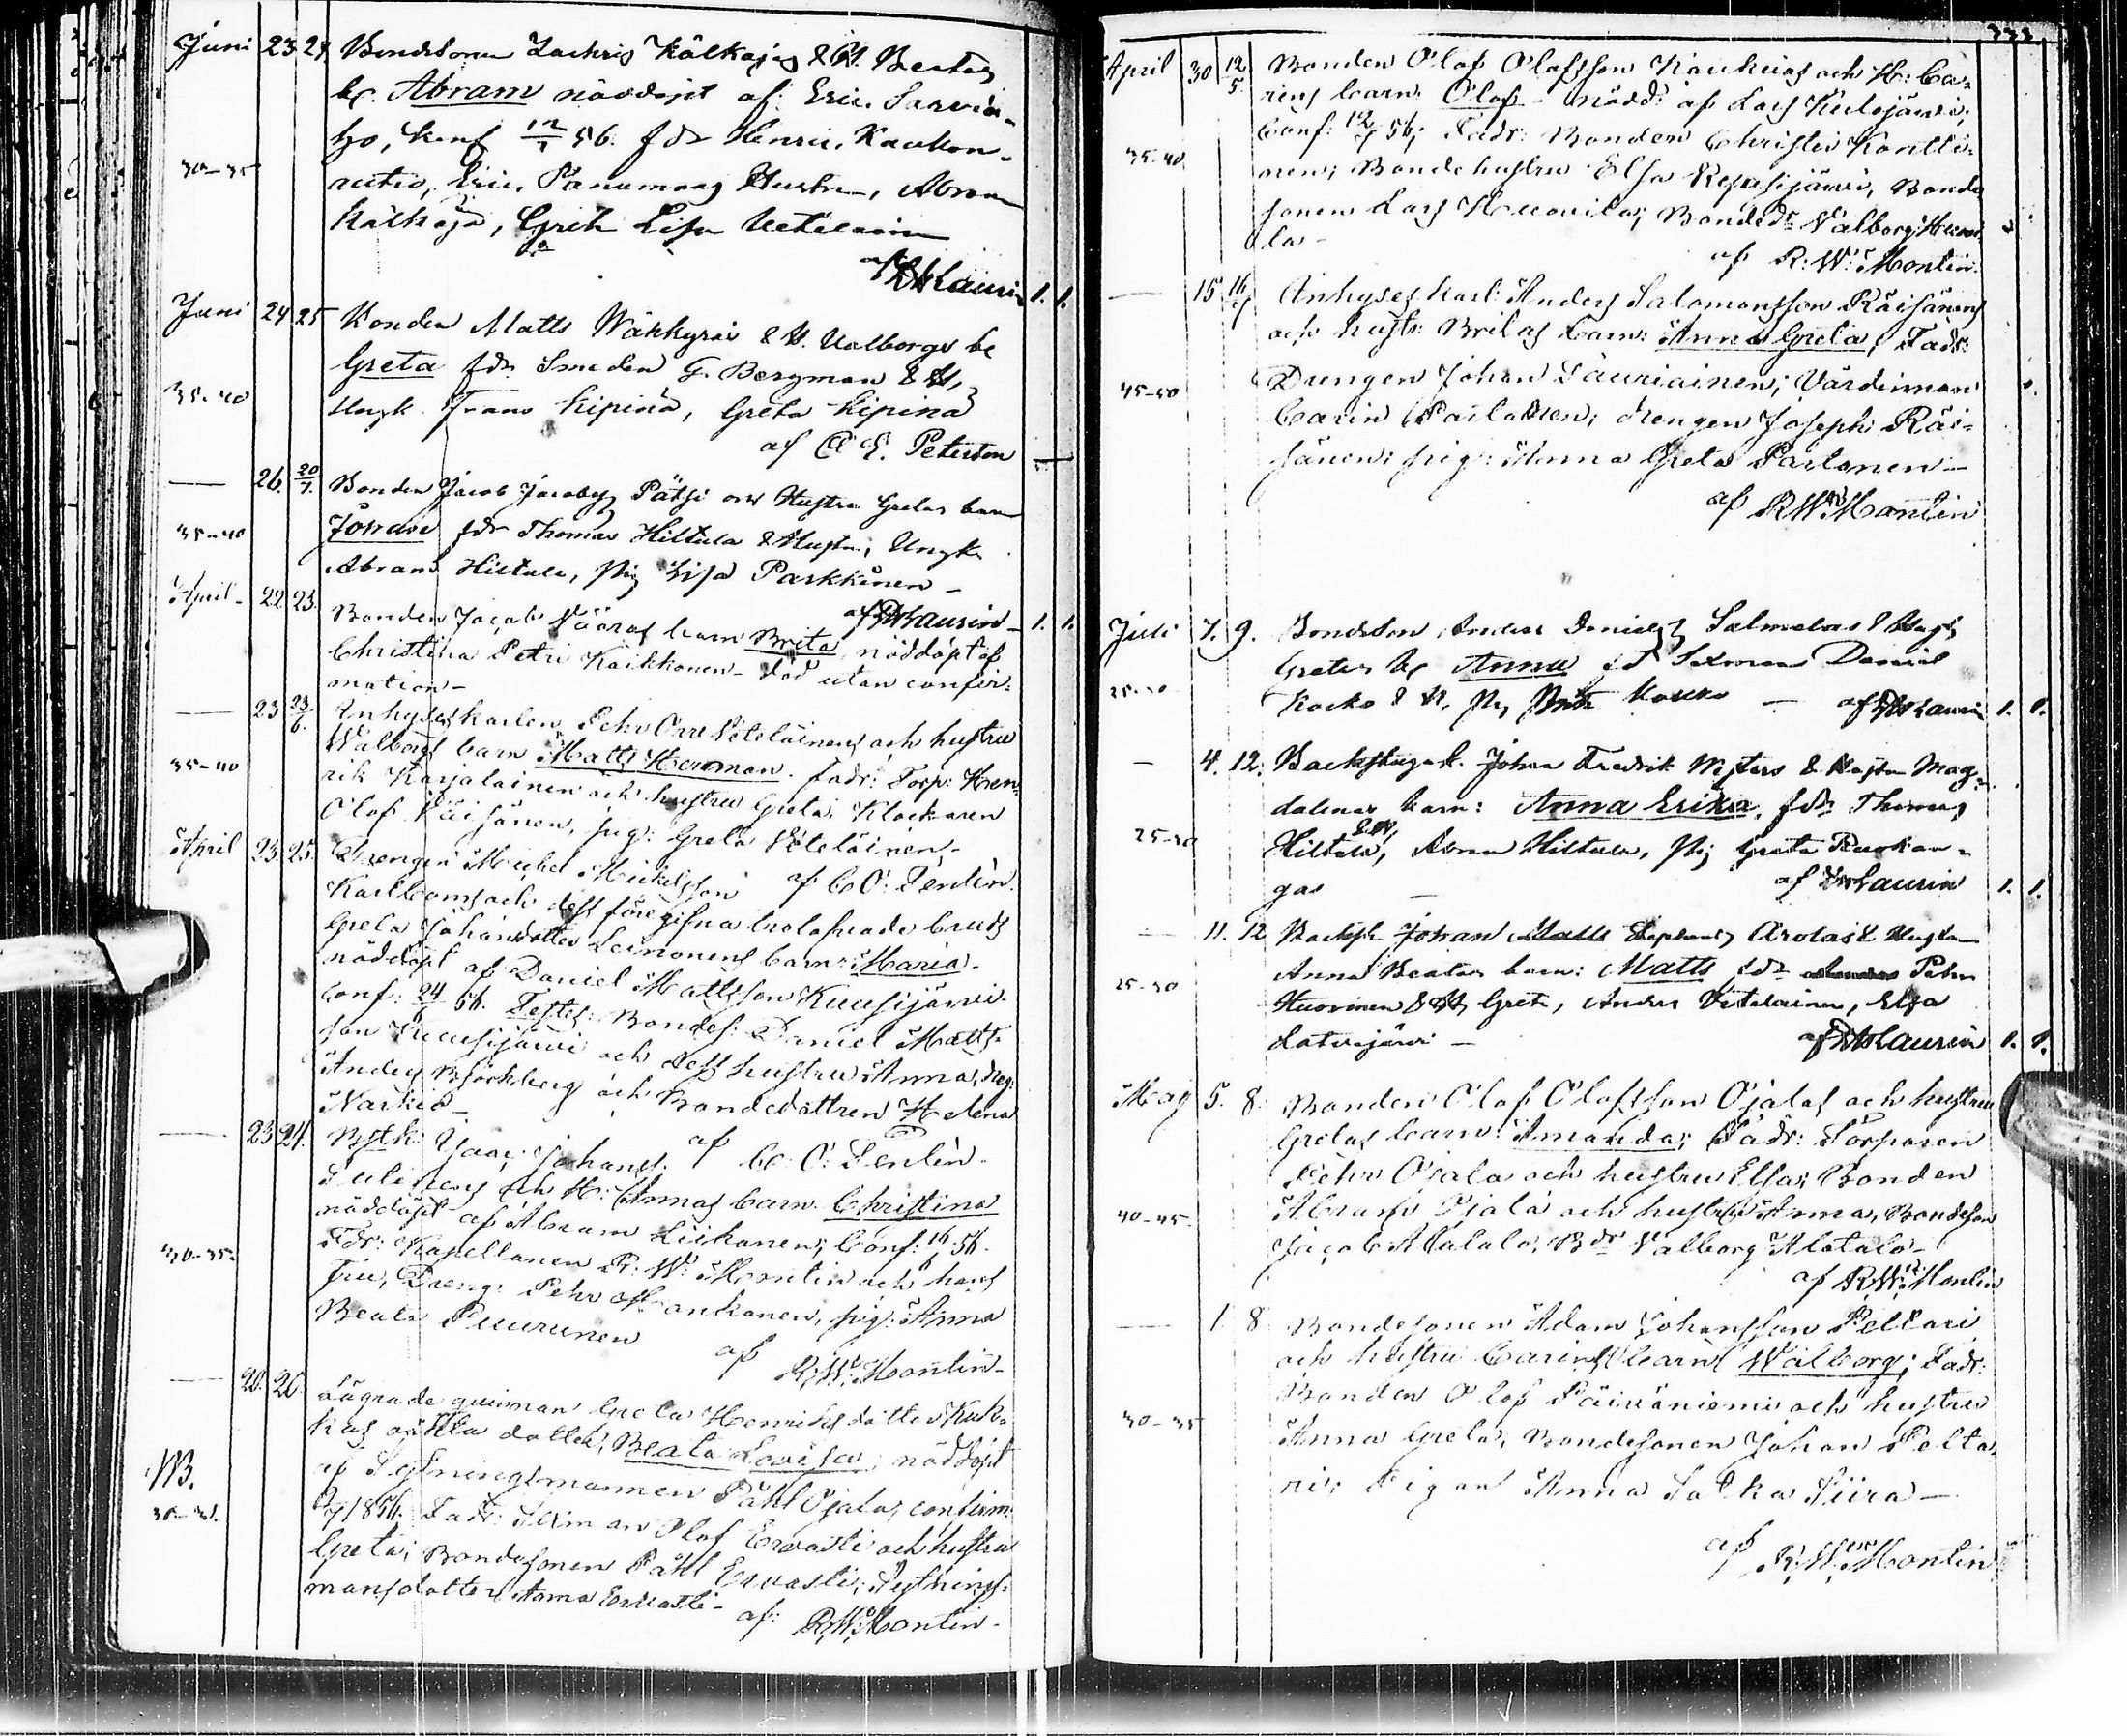 Juni 23. 24. Bondesonen Zachris Kälkäjäs & H. Beatas
b. Abram nöddöpt af Eric Sarvi-
ho, konf. 12/7 56. fdr Henric Kaukon-
30-35
autio, Eric Panumaas Hustru, Abram
Kälkäjä, Greta Lisa Uetelainen
af Laurin 1. 1.
Juni 24 25 Bonden Matts Wäkkyräs & H. Valborgs be
Greta fdr Smeden G. Bergman & H,
35-40 Ungk. Frans Kipinä, Greta Kipinä
af C E. Peterson
— 26. 20/7. Bonden Jacob Jacobss Pätsi och Hustru Gretas barn
35-40 Johan fdr Thomas Hiltula & Hustru, Ungk.
Abram Hiltula, Pig Lisa Parkkinen —
af Laurin — 1. 1.
April — 22 23. Bonden Jacob Vääräs barn Brita nöddöpt af
Christina Petri Kaikkonen — död utan confir-
mation —
— 23 23/6. Inhyseskarlen Pehr Orre Veteläinens och hustru
Walborgs barn Matts Herman. fadr: Torp: Hen-
35-40
rik Karjalainen och hustru Greta, Klockaren
Olof Räisänen, pig: Greta Veteläinen,—
af C. O. Fentin.
April 23. 25. Drengen Michel Mickelsson
Karlboms och dess föregifna trolofvade bruds
Greta Johansdotter Leinonens barn: Maria.
nöddöpt af Daniel Mattsson Kuusijärvi.
Conf: 24/ 56. Testes: Bondes: Daniel Matts-
son Kuusijärvi och dess hustru Anna, dreg:
Anders Björkberg och Bondedottren Helena
Narkio —
af C. O. Fentin.
— 23 24. Bystk: Isaac Johans.
och H: Annas barn Christina
nöddöpt af Abram Liikanen; Conf: 16/ 56.
30-35. Fdr: Kapellanen R. W. Montin och hans
fru, Dreng: Pehr Mankanen, pig: Anna
Beata Puurunen
af R. W. Montin —
— 20. 20. Lägrade quinnan Greta Henriksdotter Kuk-
kas oäkta dotter, Beata Lovisa; nöddöpt
NB. af Sytningsmannen Påhl Ojala, confirm:
/7 1856. Fadr: Sexman Olof Ervasti och hustru
Greta; Bondesonen Påhl Ervasti; Sytnings-
mansdotter Anna Ervasti —
af: R. W. Montin —
April 30 12/5. Bonden Olof Olofsson Kaukuas och H: Ca-
rins barn: Olof — nödd: af Lars Kulojärvi;
Conf: 12/5 56; Fadr: Bonden Christer Kontti-
35-40
nen; Bondehustru Elsa Reposijärvi, Bonde
sonen Lars Huovila; Bondedr Valborg Huovi
la —
af R: W: Montin.
— 15 16/ Inhyses karl: Anders Salomonsson Räisänens
och hustr: Britas barn: Anna Greta; Fadr:
45-50 Drengen Johan Lauriainen; Värdinnan
Carin Pailanen; drengen Joseph Räi-
sänen; pig: Anna Greta Partanen —
af R W Montin
Juli 7. 9. Bondeson Anders Daniels Salmelas & Hust
Gretas be Anna fdr Sexman Daniel
25-30 Kocko & H, Pig Brita Kocko — af Laurin 1. 1.
— 4. 12. Backstuguk. Johan Fredrik & Hustru Mag-
dalenas barn: Anna Erika. fdr Thomas
25-30 Hiltula & H, Abram Hiltula, Pig Greta Ruokan-
gas — af Laurin 1. 1.
— 11. 12 Backst. Johan Matts Arolas & Hustru
Anna Beatas barn: Matts fdr Petter
25-30
Huovinen & H, Greta, Anders Vetelainen, Elsa
Latvajärvi — af Laurin 1. 1.
Maj 5. 8. Bonden Olof Olofsson Ojalas och hustru
Gretas barn: Amanda; Fadr: Torparen
Pehr Ojala och hustru Elsa; Bonden
40-45. Abram Ojala och hustru Anna, Bondeson
Jacob Alatalo, Bdr Valborg Alatalo —
af R. W. Montin
— 1. 8. Bondesonen Adam Johansson Peltari
och hustru Carins barn Walborg; Fadr:
Bonden Olof Päiväniemi och hustru
30-35
Anna Greta; Bondesonen Johan Pelta-
ri; Pigan Anna Salka Siira —
af R. W. Montin